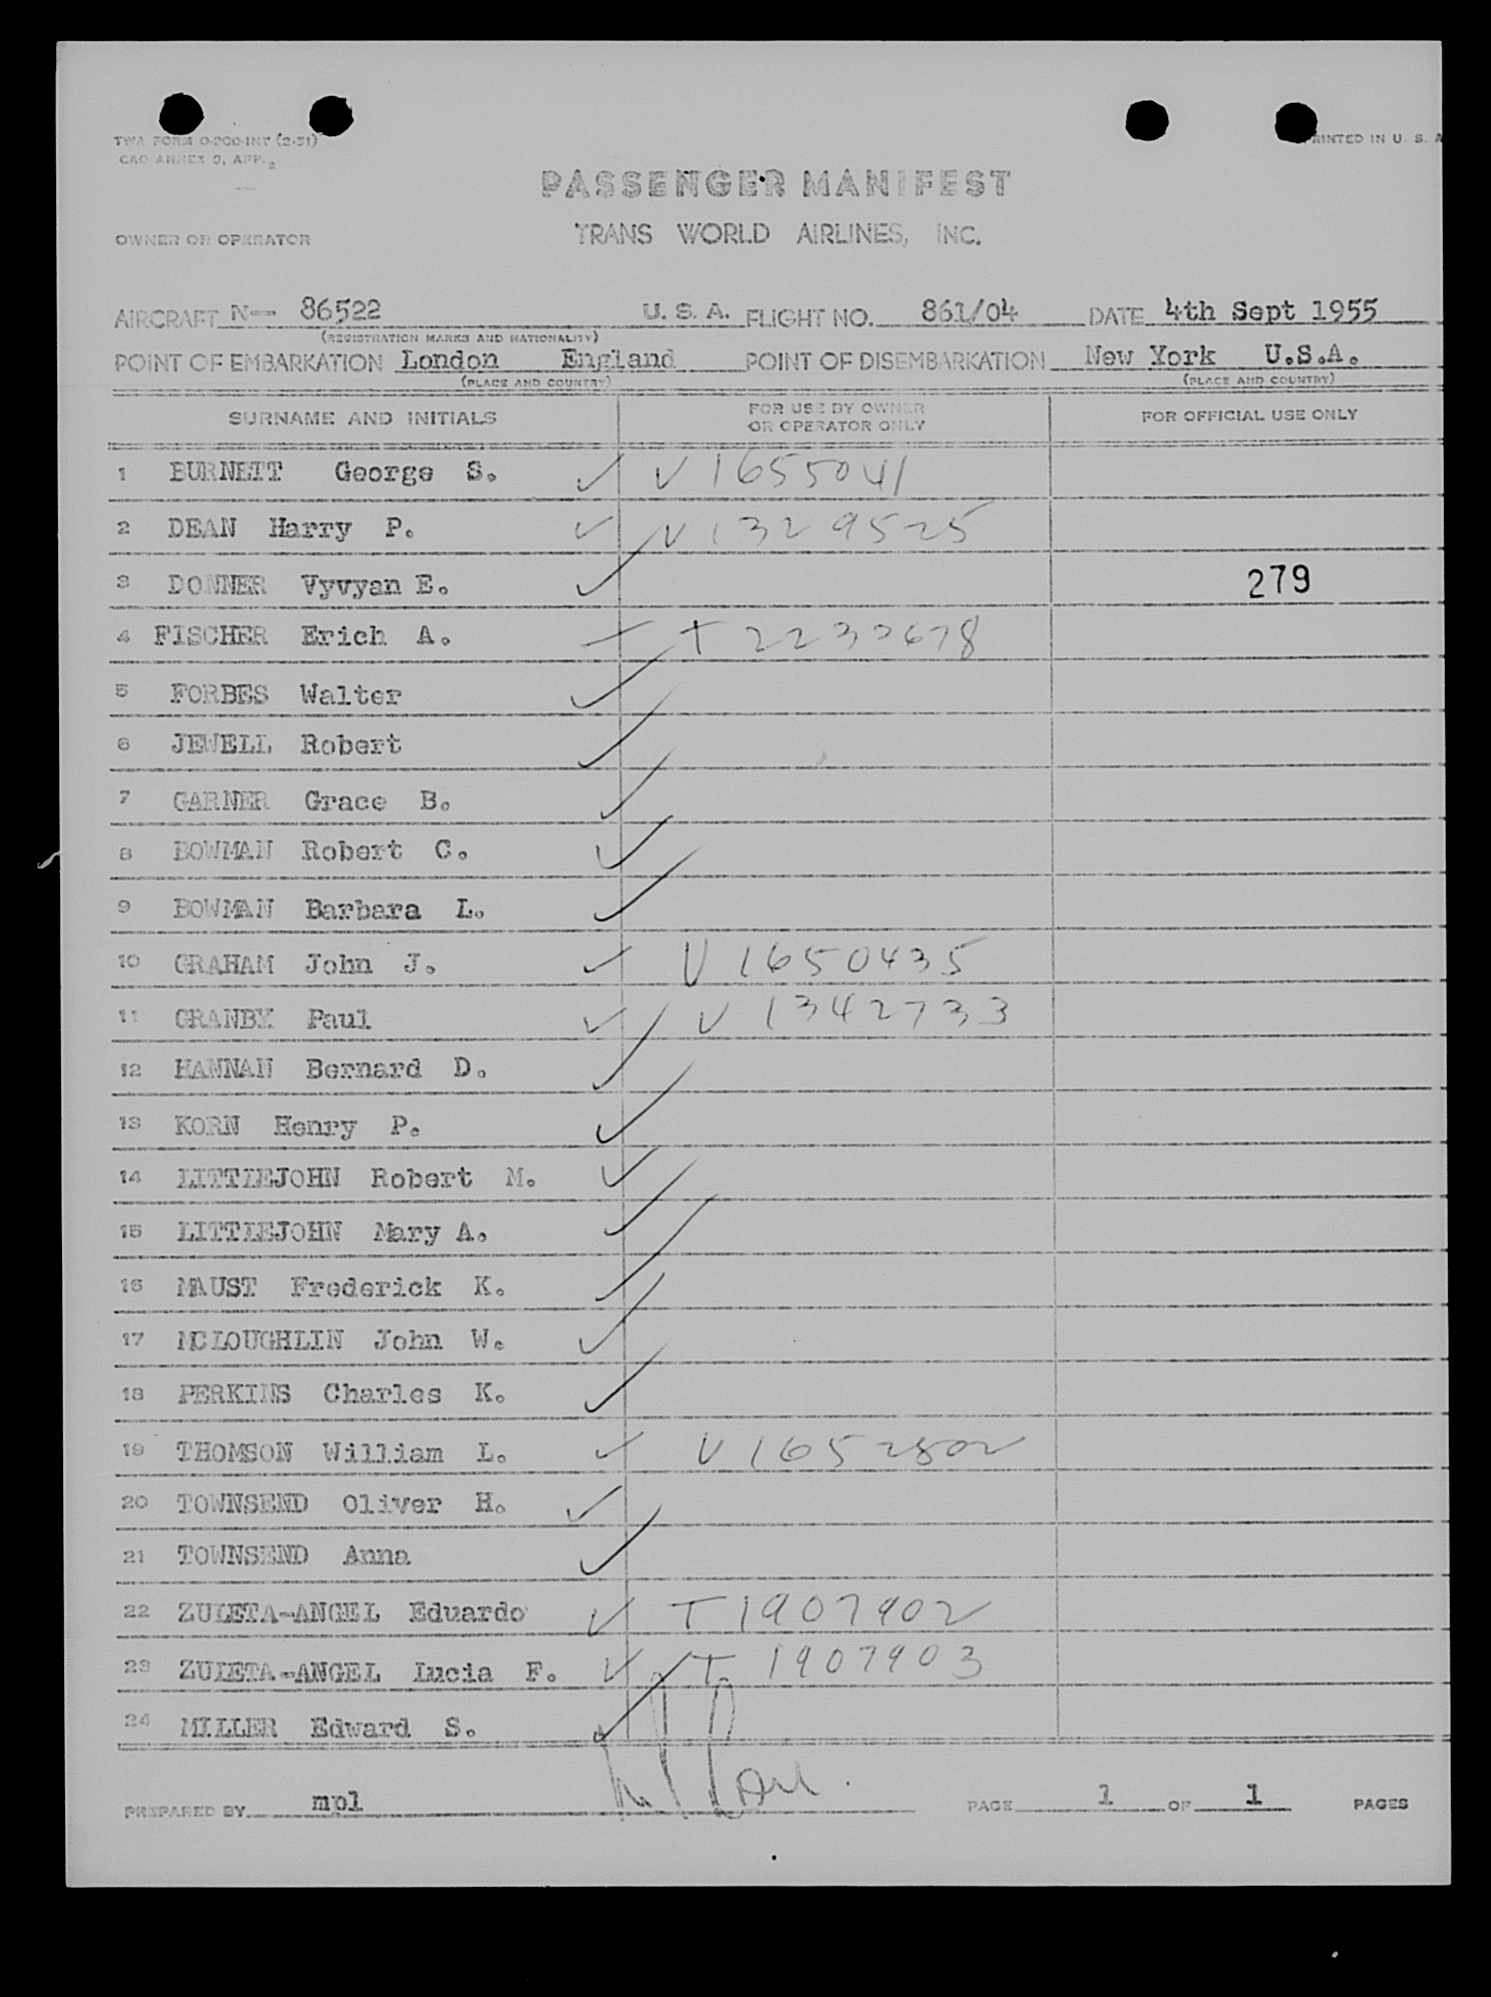 TWA FORM O-200-INT (2-51)
PRINTED IN U. S. A
CAO ANNEX 9, APP. 2
PASSENGER MANIFEST
OWNER OR OPERATOR
TRANS WORLD AIRLINES, INC.
AIRCRAFT N-- 86522 U. S. A. FLIGHT NO. 861/04 DATE 4th Sept 1955
(REGISTRATION MARKS AND NATIONALITY)
POINT OF EMBARKATION London England POINT OF DISEMBARKATION New York U.S.A.
(PLACE AND COUNTRY) (PLACE AND COUNTRY)
SURNAME AND INITIALS FOR USE BY OWNER OR OPERATOR ONLY FOR OFFICIAL USE ONLY
1 BURNETT George S. ✓ V 1655041
2 DEAN Harry P. ✓ V 1329525
3 DONNER Vyvyan E. ✓ 279
4 FISCHER Erich A. T 2230678
5 FORBES Walter ✓
6 JEWELL Robert ✓
7 GARNER Grace B. ✓
8 BOWMAN Robert C. ✓
9 BOWMAN Barbara L. ✓
10 GRAHAM John J. ✓ V 1650435
11 GRANBY Paul ✓ V 1342733
12 HANNAN Bernard D. ✓
13 KORN Henry P. ✓
14 LITTLEJOHN Robert M. ✓
15 LITTLEJOHN Mary A. ✓
16 MAUST Frederick K. ✓
17 MCLOUGHLIN John W. ✓
18 PERKINS Charles K. ✓
19 THOMSON William L. ✓ V 1652802
20 TOWNSEND Oliver H. ✓
21 TOWNSEND Anna ✓
22 ZULETA-ANGEL Eduardo ✓ T 1907902
23 ZULETA-ANGEL Lucia F. ✓ T 1907903
24 MILLER Edward S. ✓
PREPARED BY mpl PAGE 1 OF 1 PAGES